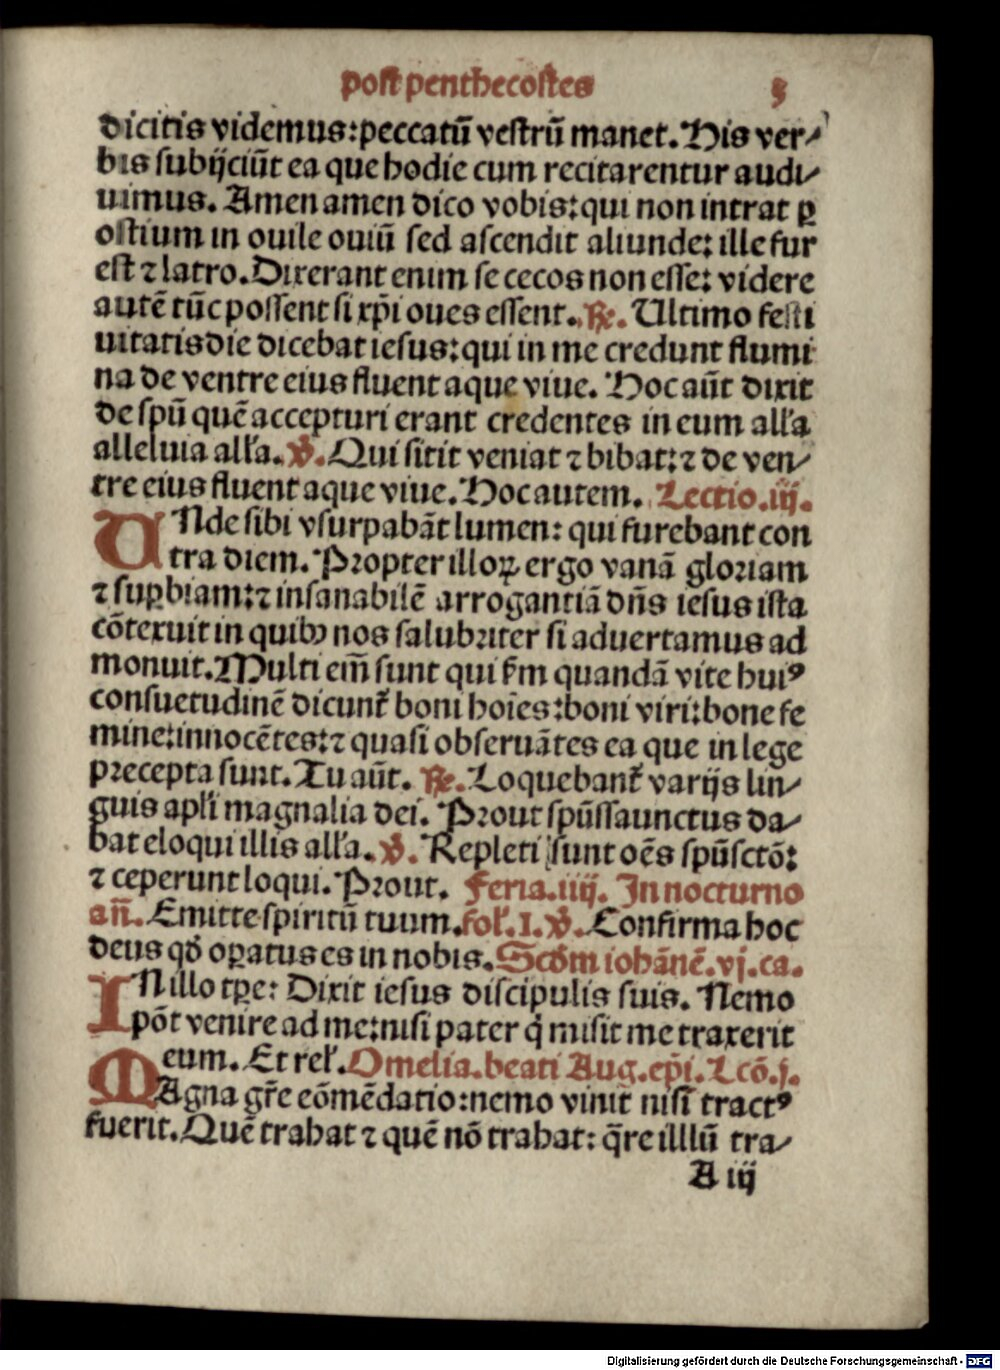 post penthecostes 3
dicitis videmus:peccatū vestrū manet. His ver⸗
bis subijciūt ea que hodie cum recitarentur audi⸗
uimus. Amen amen dico vobis:qui non intrat ꝑ
ostium in ouile ouiū sed ascendit aliunde: ille fur
est ⁊ latro. Dixerant enim se cecos non esse: videre
autē tūc possent si xp̄i oues essent. ℟. Ultimo festi
uitatis die dicebat iesus:qui in me credunt flumi
na de ventre eius fluent aque viue. Hoc aūt dixit
de spū quē accepturi erant credentes in eum all'a
alleluia all'a. ℣. Qui sitit veniat ⁊ bibat:⁊ de ven⸗
tre eius fluent aque viue. Hoc autem. Lectio.iij.
UNde sibi vsurpabāt lumen: qui furebant con
tra diem. Propter illoꝝ ergo vanā gloriam
⁊ suꝑbiam:⁊ insanabilē arrogantiā dn̄s iesus ista
cōtexuit in quibꝫ nos salubriter si aduertamus ad
monuit. Multi em̄ sunt qui ẜm quandā vite huiꝰ
consuetudinē dicunt᷑ boni hoīes:boni viri:bone fe
mine:innocētes:⁊ quasi obseruātes ea que in lege
precepta sunt. Tu aūt. ℟. Loquebant᷑ varijs lin⸗
guis apl'i magnalia dei. Prout spūssanctus da⸗
bat eloqui illis all'a. ℣. Repleti sunt oēs spūsctō:
⁊ ceperunt loqui. Prout. Feria.iiij. In nocturno
an̄. Emitte spiritū tuum. fol'.1. ℣. Confirma hoc
deus qd̄ oꝑatus es in nobis. Scd̄m iohānē.vj.ca.
IN illo tꝑe: Dixit iesus discipulis suis. Nemo
pōt venire ad me:nisi pater q̇ misit me traxerit
eum. Et rel'. Omelia.beati Aug.ep̄i. Lcō.j.
MAgna gr̄e cōmēdatio:nemo vinit nisi tractꝰ
fuerit. Quē trahat ⁊ quē nō trahat: q̄re illlū tra⸗
A iij
Digitalisierung gefördert durch die Deutsche Forschungsgemeinschaft - DFG